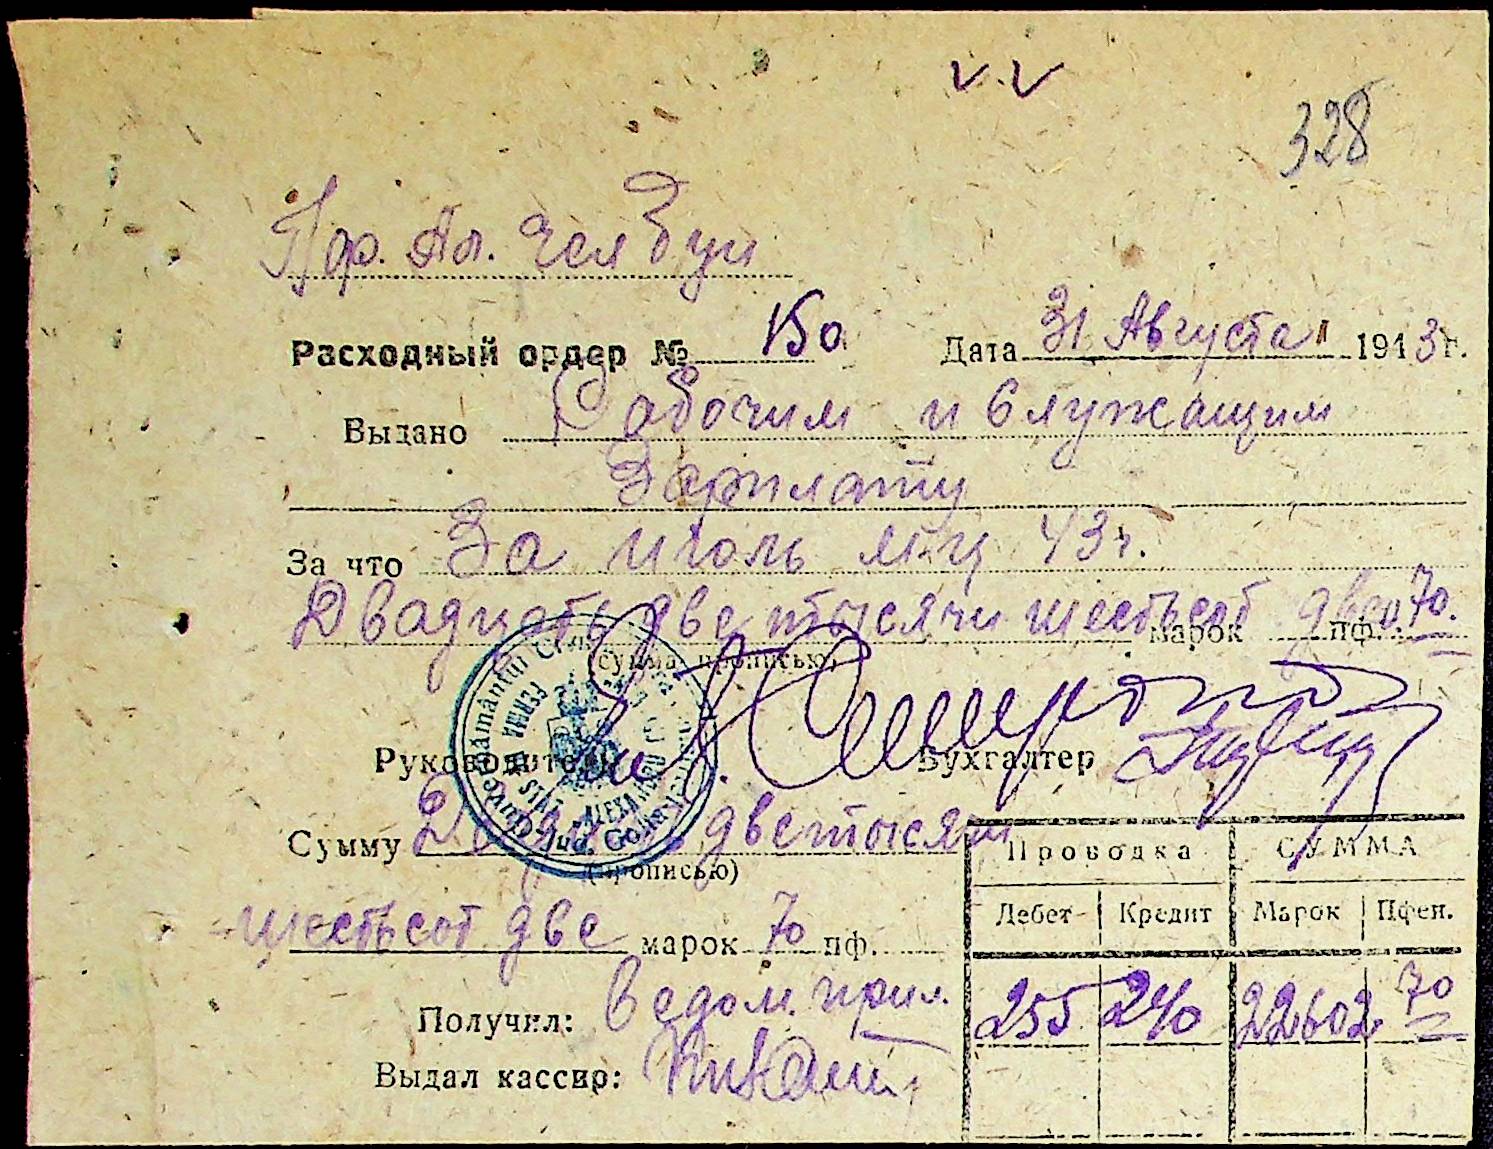 328
Расходный ордер № 150 Дата 31 Августа 1943 г.
Выдано Рабочим и Служащим
Зарплату
За что За июль м-ц 43 г.
Двадцать две тысячи шестьсот две марок пф. 70.
(сумма прописью)
Руководитель Бухгалтер
Сумму две тысячи
(прописью)
шестьсот две марок 70 пф.
Получил: Ведом. прил.
Выдал кассир:
Проводка СУММА
Дебет Кредит Марок Пфен.
255 240 22602 70
FERMA DE STAT